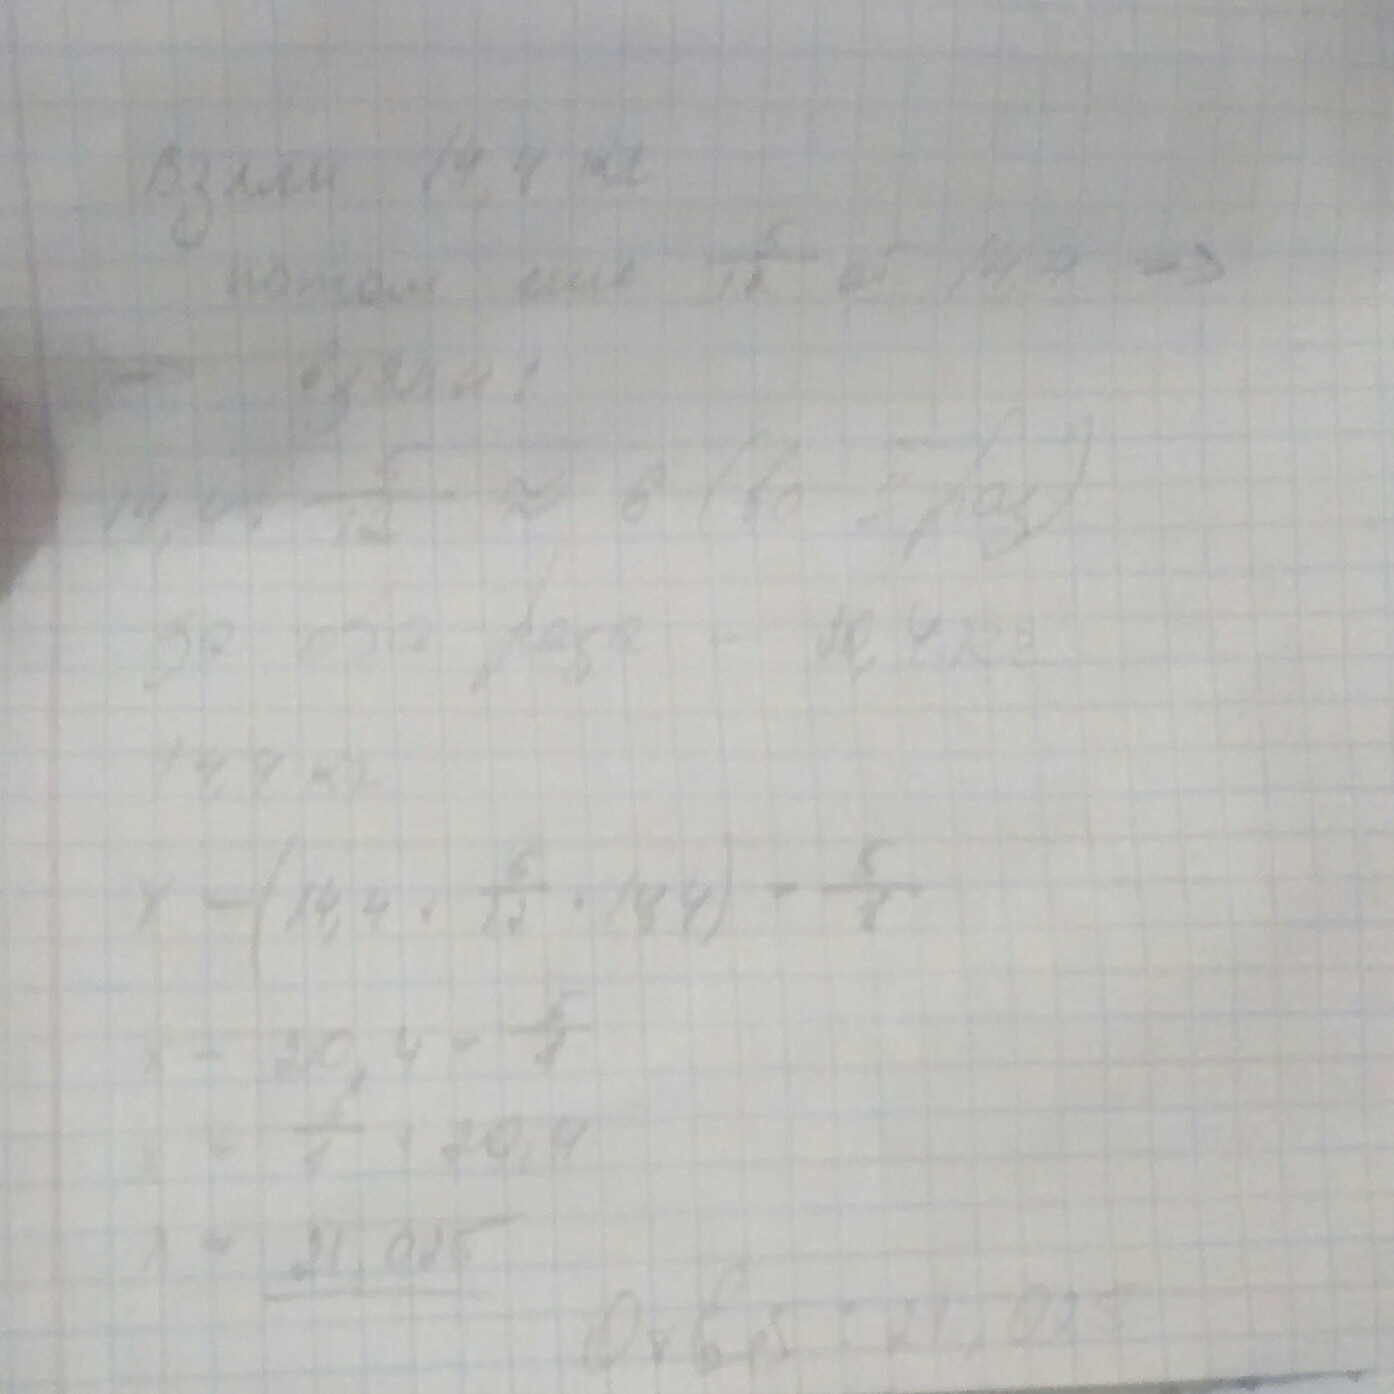 Взяли 14,4 кг
потом еще 5/12 от 14,4 →
→ взяли:
14,4 · 5/12 = 6 (во II раз)
За оба раза - 20,4 кг
14,4 кг
x - (14,4 · 5/12 · 14,4) = 5/8
x - 20,4 = 5/8
x = 5/8 + 20,4
x = 21,025
Ответ: 21,025